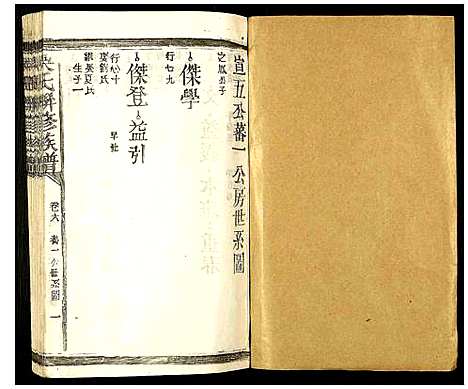 宣五公蕃一公房世系圖
之鳳子
傑學
行七九
傑登
行七十
娶劉氏
繼娶夏氏
生子一
益引
早世
氏聯修族譜
卷六 蕃一公世系圖 一